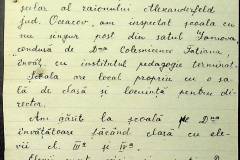 școlar al raionului Alexanderfeld
jud. Oceacov, am inspectat școala cu
un singur post din satul Ianovca
condusă de D-na Colesnicenco Tatiana,
învăț. cu institutul pedagogic terminat.
Școala are local propriu cu o sa-
lă de clasă și locuință pentru di-
rector.
Am găsit la școală pe D-na
învățătoare făcând clasă cu ele-
vii cl. III-a și IV-a.